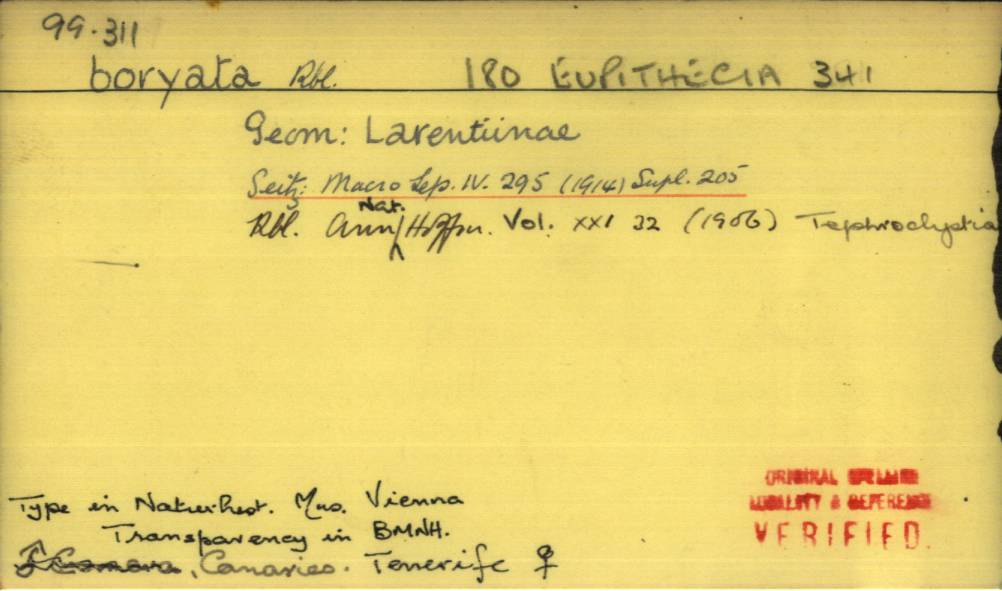 99.311
boryata Rbl. 180 EUPITHECIA 341
Geom: Larentiinae
Seitz: Macro Lep. IV. 295 (1914) Supl. 205
Rbl. Ann Nat. Hoffm. Vol. XXI 32 (1906) Tephroclystia
Type in Naturhist. Mus. Vienna
Transparency in BMNH.
, Canaries. Tenerife ♀
ORIGINAL SPELLING
LOCALITY & REFERENCE
VERIFIED.